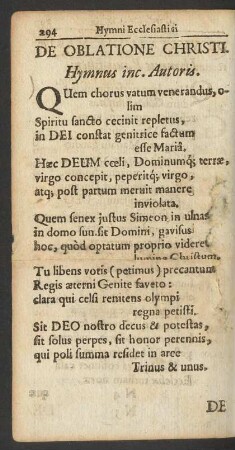 294 Hymni Ecclesiastici
DE OBLATIONE CHRISTI.
Hymnus inc. Autoris.
QUem chorus vatum venerandus, o-
lim
Spiritu sancto cecinit repletus,
in DEI constat genitrice factum
esse Mariâ.
Hæc DEUM cœli, Dominumq; terræ,
virgo concepit, peperitq; virgo,
atq; post partum meruit manere
inviolata.
Quem senex justus Simeon in ulnas
in domo sumsit Domini, gavisus
hoc, quòd optatum proprio videret
lumine Christum.
Tu libens votis (petimus) precantum
Regis æterni Genite faveto:
clara qui celsi renitens olympi
regna petisti.
Sit DEO nostro decus & potestas,
sit solus perpes, sit honor perennis,
qui poli summa residet in arce
Trinus & unus.
DE